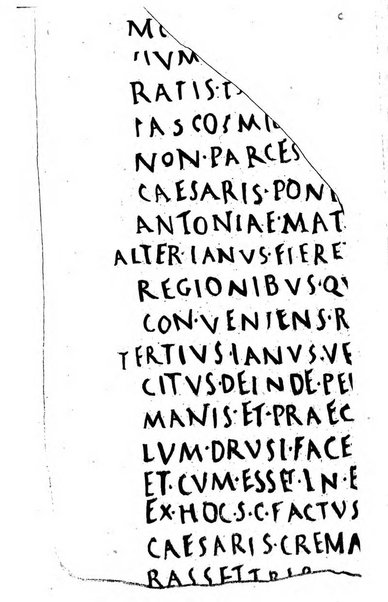 RATIS·
NON·PARCES
CAESARIS·PON
ANTONIAE·MAT
ALTER·IANVS·FIERE
REGIONIBVS·QV
CON·VENIENS·R
TERTIVS·IANVS·VE
CITVS·DEINDE·PE
MANIS·ET·PRAEC
LVM·DRVSI·FACE
ET·CVM·ESSET·IN·E
EX·HOC·S·C·FACTVS
CAESARIS·CREMA
RASSET